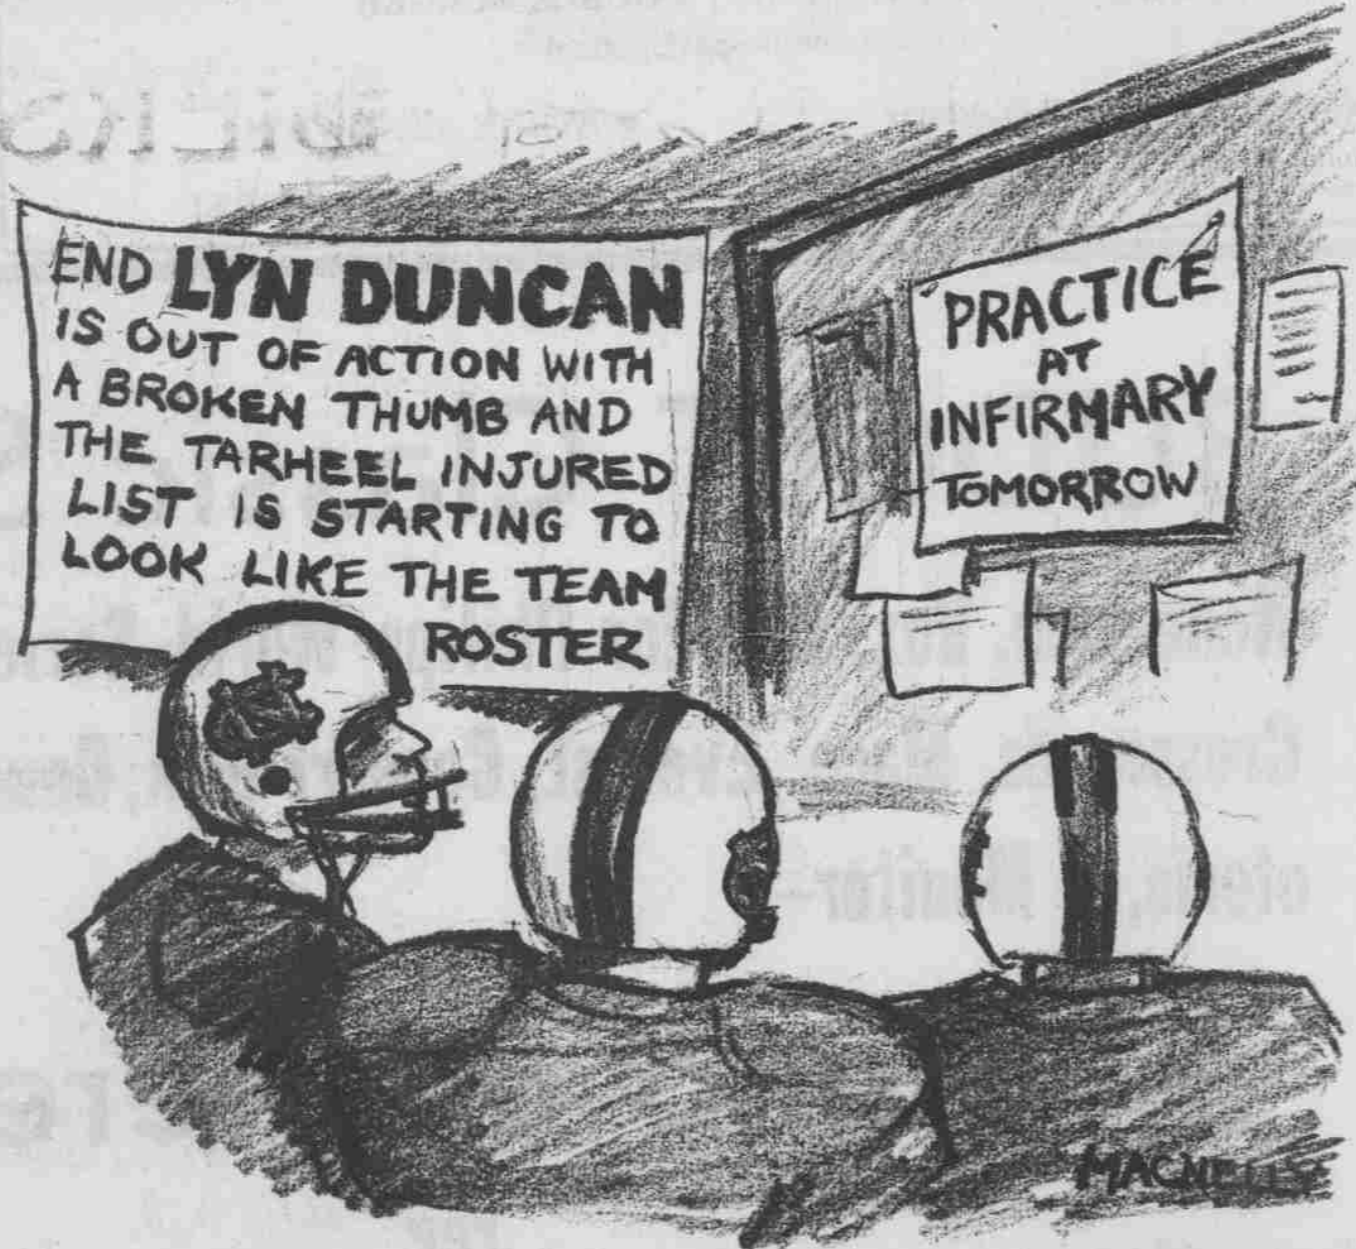 END LYN DUNCAN
IS OUT OF ACTION WITH
A BROKEN THUMB AND
THE TARHEEL INJURED
LIST IS STARTING TO
LOOK LIKE THE TEAM
ROSTER
PRACTICE
AT
INFIRMARY
TOMORROW
MACNELLY